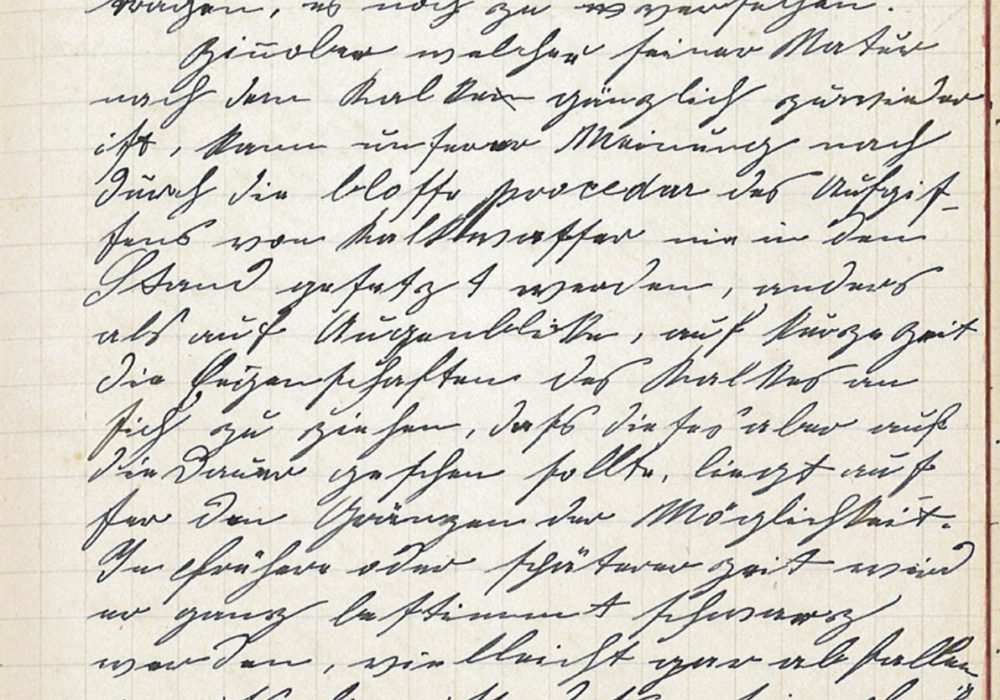 wagen, es noch zu versuchen.
Zinnober welcher seiner Natur
nach dem Kalken gänzlich zuwieder
ist, kann unserer Meinung nach
durch die blosse procedur des Aufgis-
sens von Kalkwasser nie in den
Stand gesetzt werden, anders
als auf Augenblicke, auf kurze Zeit
die Eigenschaften des Kalkes an
sich zu ziehen, dass dieses aber auf
die Dauer geschehen sollte, liegt aus
ser den Gränzen der Möglichkeit.
In früherer oder späterer Zeit wird
er ganz bestimmt schwarz
werden, vielleicht gar abfallen